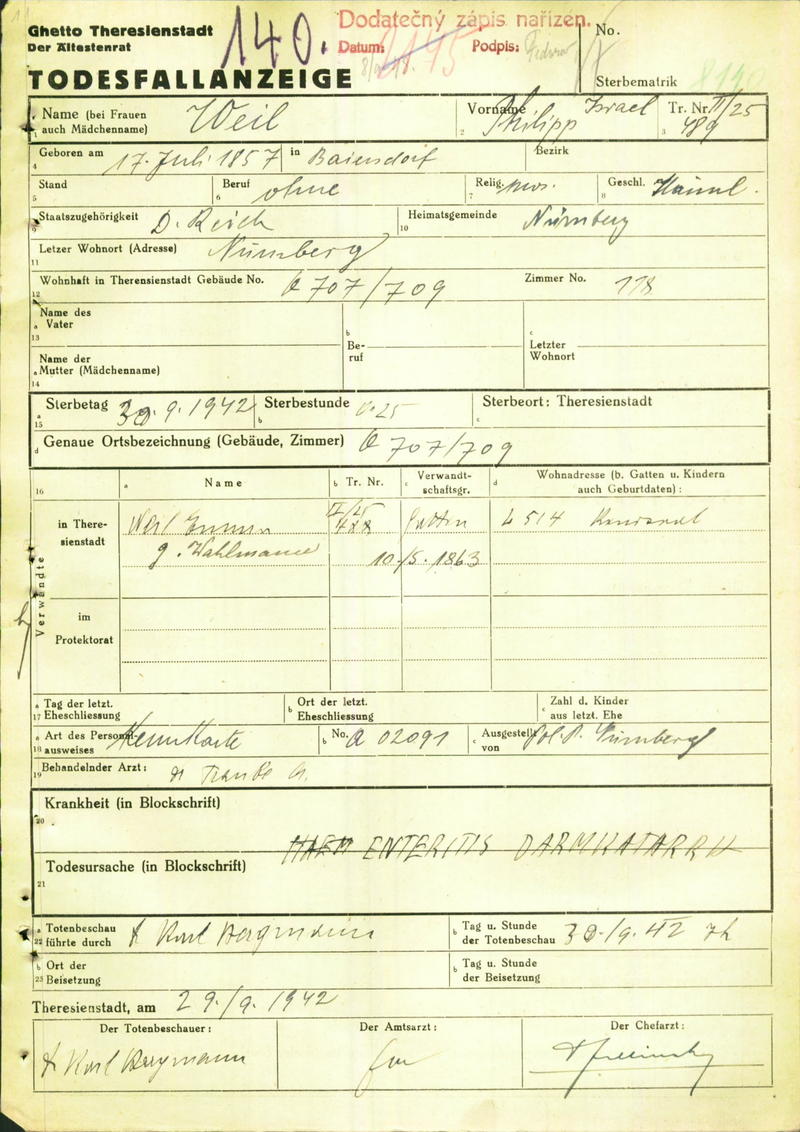 Ghetto Theresienstadt
Der Ältestenrat
140.
Dodatečný zápis nařízen.
Datum:
Podpis:
No.
TODESFALLANZEIGE
Sterbematrik
Name (bei Frauen auch Mädchenname) Weil
Vorname Philipp Israel
Tr. Nr. II/25 489
1 2 3
Geboren am 17. Juli 1857 in Baiersdorf Bezirk
4
Stand Beruf ohne Relig. mos. Geschl. Männl.
5 6 7 8
Staatszugehörigkeit D. Reich Heimatsgemeinde Nürnberg
9 10
Letzer Wohnort (Adresse) Nürnberg
11
Wohnhaft in Theresienstadt Gebäude No. Q 707/709 Zimmer No. 118
12
a Name des Vater
13
b Beruf
c Letzter Wohnort
a Name der Mutter (Mädchenname)
14
a Sterbetag 30. 9. 1942 b Sterbestunde 0.25 c Sterbeort: Theresienstadt
15
d Genaue Ortsbezeichnung (Gebäude, Zimmer) Q 707/709
16 a Name b Tr. Nr. c Verwandtschaftsgr. d Wohnadresse (b. Gatten u. Kindern auch Geburtdaten) :
Verwandte
in Theresienstadt
Weil Emma II/25 488 Gattin L 514
g. Wahlmann 10./5. 1863
im Protektorat
a Tag der letzt. Eheschliessung
17
b Ort der letzt. Eheschliessung
c Zahl d. Kinder aus letzt. Ehe
a Art des Personalausweises Kennkarte b No. A 02091 c Ausgestellt von Pol. P. Nürnberg
18
19 Behandelnder Arzt:
Krankheit (in Blockschrift)
20
ENTERITIS DARMKATARRH
Todesursache (in Blockschrift)
21
a Totenbeschau führte durch Karl Bergmann b Tag u. Stunde der Totenbeschau 30./9. 42 7h
22
b Ort der Beisetzung
23
b Tag u. Stunde der Beisetzung
Theresienstadt, am 29./9. 1942
Der Totenbeschauer: Der Amtsarzt: Der Chefarzt:
Karl Bergmann